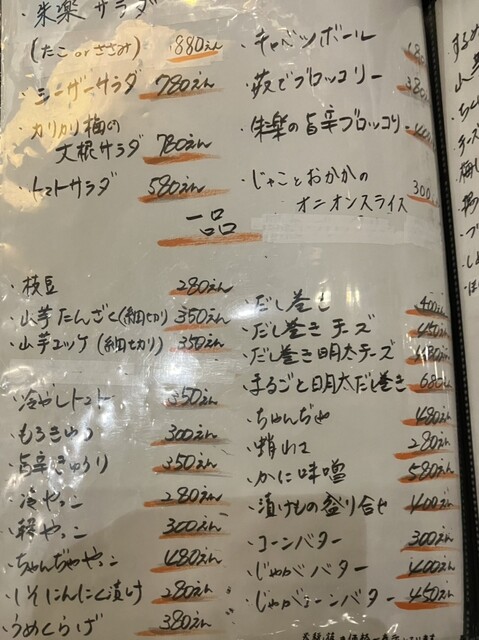 ・朱楽サラダ
(たこ or ささみ) 880えん
・シーザーサラダ 780えん
・カリカリ梅の
大根サラダ 780えん
・トマトサラダ 580えん
・キャベツボール
・茹でブロッコリー 380
・朱楽の旨辛ブロッコリー
・じゃことおかかの
オニオンスライス 300
一品
・枝豆 280えん
・山芋たんざく(細切り) 350えん
・山芋ユッケ(細切り) 350えん
・冷やしトマト 350えん
・もろきゅう 300えん
・旨辛きゅうり 350えん
・冷やっこ 280えん
・軽やっこ 300えん
・ちゃんぢゃやっこ 480えん
・しそにんにく漬け 280えん
・うめくらげ 380えん
・だし巻き 400
・だし巻きチーズ 450
・だし巻き明太チーズ
・まるごと明太だし巻き 680
・ちゃんぢゃ 480えん
・蛸わさ 280えん
・かに味噌 580えん
・漬けもの盛り合せ 400えん
・コーンバター 300えん
・じゃがバター 400えん
・じゃがコーンバター 450えん